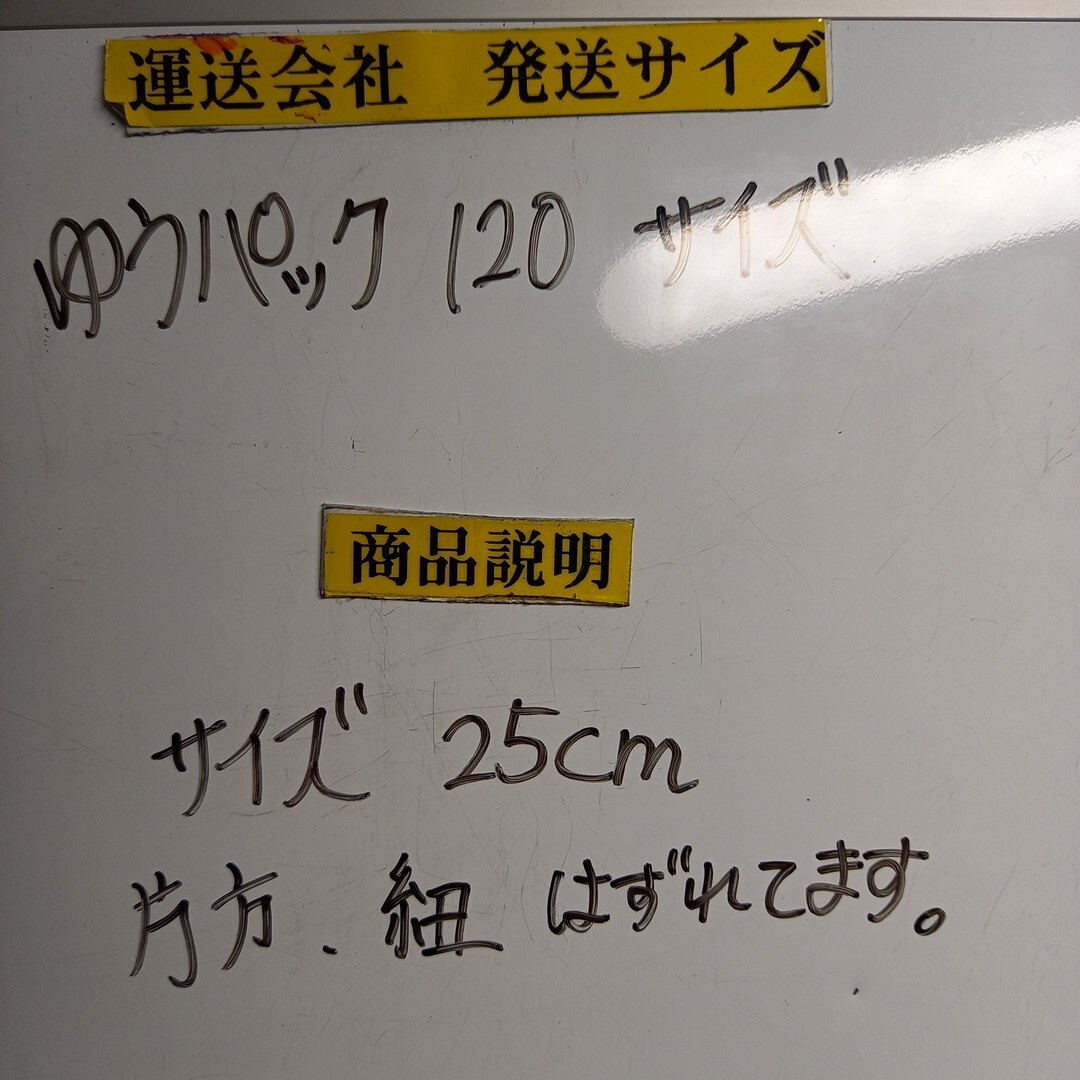 運送会社 発送サイズ
ゆうパック 120 サイズ
商品説明
サイズ 25cm
片方、紐 はずれてます。